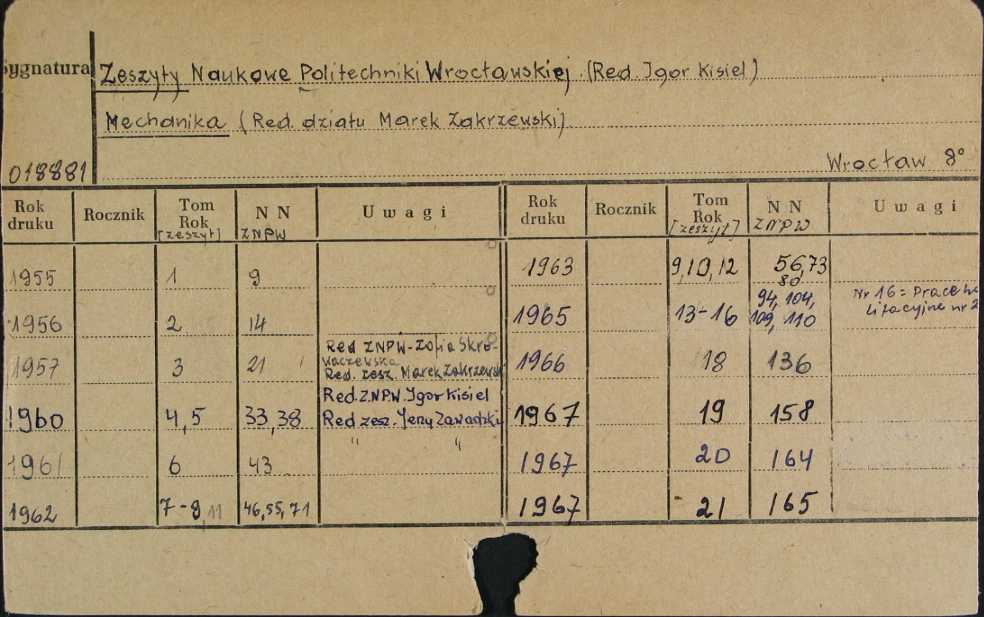 Sygnatura Zeszyty Naukowe Politechniki Wrocławskiej (Red. Igor Kisiel)
Mechanika (Red. działu Marek Zakrzewski)
018881 Wrocław 8°
Rok druku Rocznik Tom Rok [zeszyt] N N ZNPW Uwagi
1955 1 9
1956 2 14
1957 3 21 Red ZNPW-Zofia Skro-
waczewska
Red. zesz. Marek Zakrzewsk
1960 4,5 33,38 Red. ZNPW. Igor Kisiel
Red zesz. Jerzy Zawadzki
1961 6 43 " "
1962 7-8,11 46,55,71
Rok druku Rocznik Tom Rok [zeszyt] N N ZNPW Uwagi
1963 9,10,12 56,73
80
1965 13-16 94, 104,
109, 110 Nr 16 = Prace
litacyjne nr 2
1966 18 136
1967 19 158
1967 20 164
1967 21 165